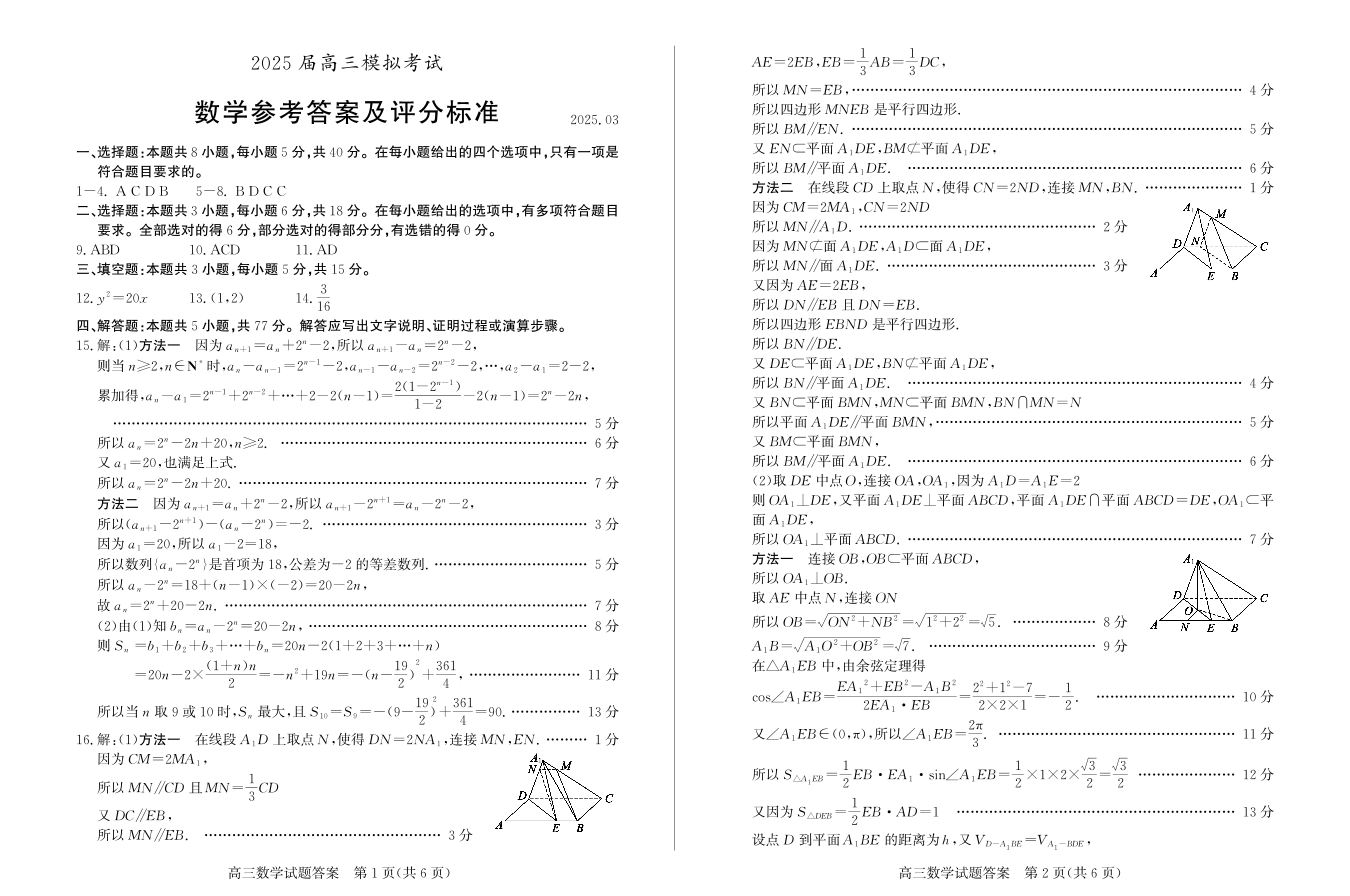 2025 届高三模拟考试
数学参考答案及评分标准
2025.03
一、选择题:本题共 8 小题,每小题 5 分,共 40 分。在每小题给出的四个选项中,只有一项是
符合题目要求的。
1-4. A C D B  5-8. B D C C
二、选择题:本题共 3 小题,每小题 6 分,共 18 分。在每小题给出的选项中,有多项符合题目
要求。全部选对的得 6 分,部分选对的得部分分,有选错的得 0 分。
9. ABD  10. ACD  11. AD
三、填空题:本题共 3 小题,每小题 5 分,共 15 分。
12. y²=20x  13. (1,2)  14. 3/16
四、解答题:本题共 5 小题,共 77 分。解答应写出文字说明、证明过程或演算步骤。
15. 解:(1)方法一 因为 aₙ₊₁=aₙ+2ⁿ-2,所以 aₙ₊₁-aₙ=2ⁿ-2,
则当 n≥2,n∈N* 时,aₙ-aₙ₋₁=2ⁿ⁻¹-2,aₙ₋₁-aₙ₋₂=2ⁿ⁻²-2,…,a₂-a₁=2-2,
累加得,aₙ-a₁=2ⁿ⁻¹+2ⁿ⁻²+…+2-2(n-1)=2(1-2ⁿ⁻¹)/(1-2)-2(n-1)=2ⁿ-2n,
…… 5 分
所以 aₙ=2ⁿ-2n+20,n≥2. …… 6 分
又 a₁=20,也满足上式.
所以 aₙ=2ⁿ-2n+20. …… 7 分
方法二 因为 aₙ₊₁=aₙ+2ⁿ-2,所以 aₙ₊₁-2ⁿ⁺¹=aₙ-2ⁿ-2,
所以(aₙ₊₁-2ⁿ⁺¹)-(aₙ-2ⁿ)=-2. …… 3 分
因为 a₁=20,所以 a₁-2=18,
所以数列{aₙ-2ⁿ}是首项为 18,公差为-2 的等差数列. …… 5 分
所以 aₙ-2ⁿ=18+(n-1)×(-2)=20-2n,
故 aₙ=2ⁿ+20-2n. …… 7 分
(2)由(1)知 bₙ=aₙ-2ⁿ=20-2n, …… 8 分
则 Sₙ=b₁+b₂+b₃+…+bₙ=20n-2(1+2+3+…+n)
=20n-2×(1+n)n/2=-n²+19n=-(n-19/2)²+361/4, …… 11 分
所以当 n 取 9 或 10 时,Sₙ 最大,且 S₁₀=S₉=-(9-19/2)²+361/4=90. …… 13 分
16. 解:(1)方法一 在线段 A₁D 上取点 N,使得 DN=2NA₁,连接 MN,EN. …… 1 分
因为 CM=2MA₁,
所以 MN∥CD 且 MN=1/3CD
又 DC∥EB,
所以 MN∥EB. …… 3 分
A₁
N
M
D
C
A
E
B
高三数学试题答案 第 1 页(共 6 页)
AE=2EB,EB=1/3AB=1/3DC,
所以 MN=EB, …… 4 分
所以四边形 MNEB 是平行四边形.
所以 BM∥EN. …… 5 分
又 EN⊂平面 A₁DE,BM⊄平面 A₁DE,
所以 BM∥平面 A₁DE. …… 6 分
方法二 在线段 CD 上取点 N,使得 CN=2ND,连接 MN,BN. …… 1 分
因为 CM=2MA₁,CN=2ND
所以 MN∥A₁D. …… 2 分
因为 MN⊄面 A₁DE,A₁D⊂面 A₁DE,
所以 MN∥面 A₁DE. …… 3 分
又因为 AE=2EB,
所以 DN∥EB 且 DN=EB.
所以四边形 EBND 是平行四边形.
所以 BN∥DE.
又 DE⊂平面 A₁DE,BN⊄平面 A₁DE,
所以 BN∥平面 A₁DE. …… 4 分
又 BN⊂平面 BMN,MN⊂平面 BMN,BN∩MN=N
所以平面 A₁DE∥平面 BMN, …… 5 分
又 BM⊂平面 BMN,
所以 BM∥平面 A₁DE. …… 6 分
A₁
M
D
N
C
A
E
B
(2)取 DE 中点 O,连接 OA,OA₁,因为 A₁D=A₁E=2
则 OA₁⊥DE,又平面 A₁DE⊥平面 ABCD,平面 A₁DE∩平面 ABCD=DE,OA₁⊂平
面 A₁DE,
所以 OA₁⊥平面 ABCD. …… 7 分
方法一 连接 OB,OB⊂平面 ABCD,
所以 OA₁⊥OB.
取 AE 中点 N,连接 ON
所以 OB=√(ON²+NB²)=√(1²+2²)=√5. …… 8 分
A₁B=√(A₁O²+OB²)=√7. …… 9 分
A₁
D
C
O
A
N
E
B
在△A₁EB 中,由余弦定理得
cos∠A₁EB=(EA₁²+EB²-A₁B²)/(2EA₁·EB)=(2²+1²-7)/(2×2×1)=-1/2. …… 10 分
又∠A₁EB∈(0,π),所以∠A₁EB=2π/3. …… 11 分
所以 S△A₁EB=1/2EB·EA₁·sin∠A₁EB=1/2×1×2×√3/2=√3/2 …… 12 分
又因为 S△DEB=1/2EB·AD=1 …… 13 分
设点 D 到平面 A₁BE 的距离为 h,又 V_D-A₁BE=V_A₁-BDE,
高三数学试题答案 第 2 页(共 6 页)